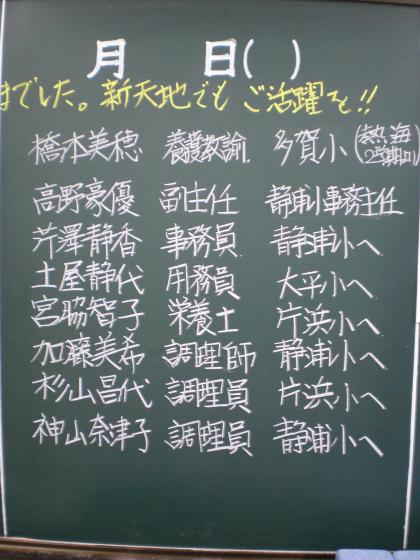 月 日( )
までした。新天地でもご活躍を!!
橋本美穂 養護教諭 多賀小(熱海2学期only)
高野豪優 副主任 静浦小事務主任
芹澤静香 事務員 静浦小へ
土屋静代 用務員 大平小へ
宮脇智子 栄養士 片浜小へ
加藤美希 調理師 静浦小へ
杉山昌代 調理員 片浜小へ
神山奈津子 調理員 静浦小へ